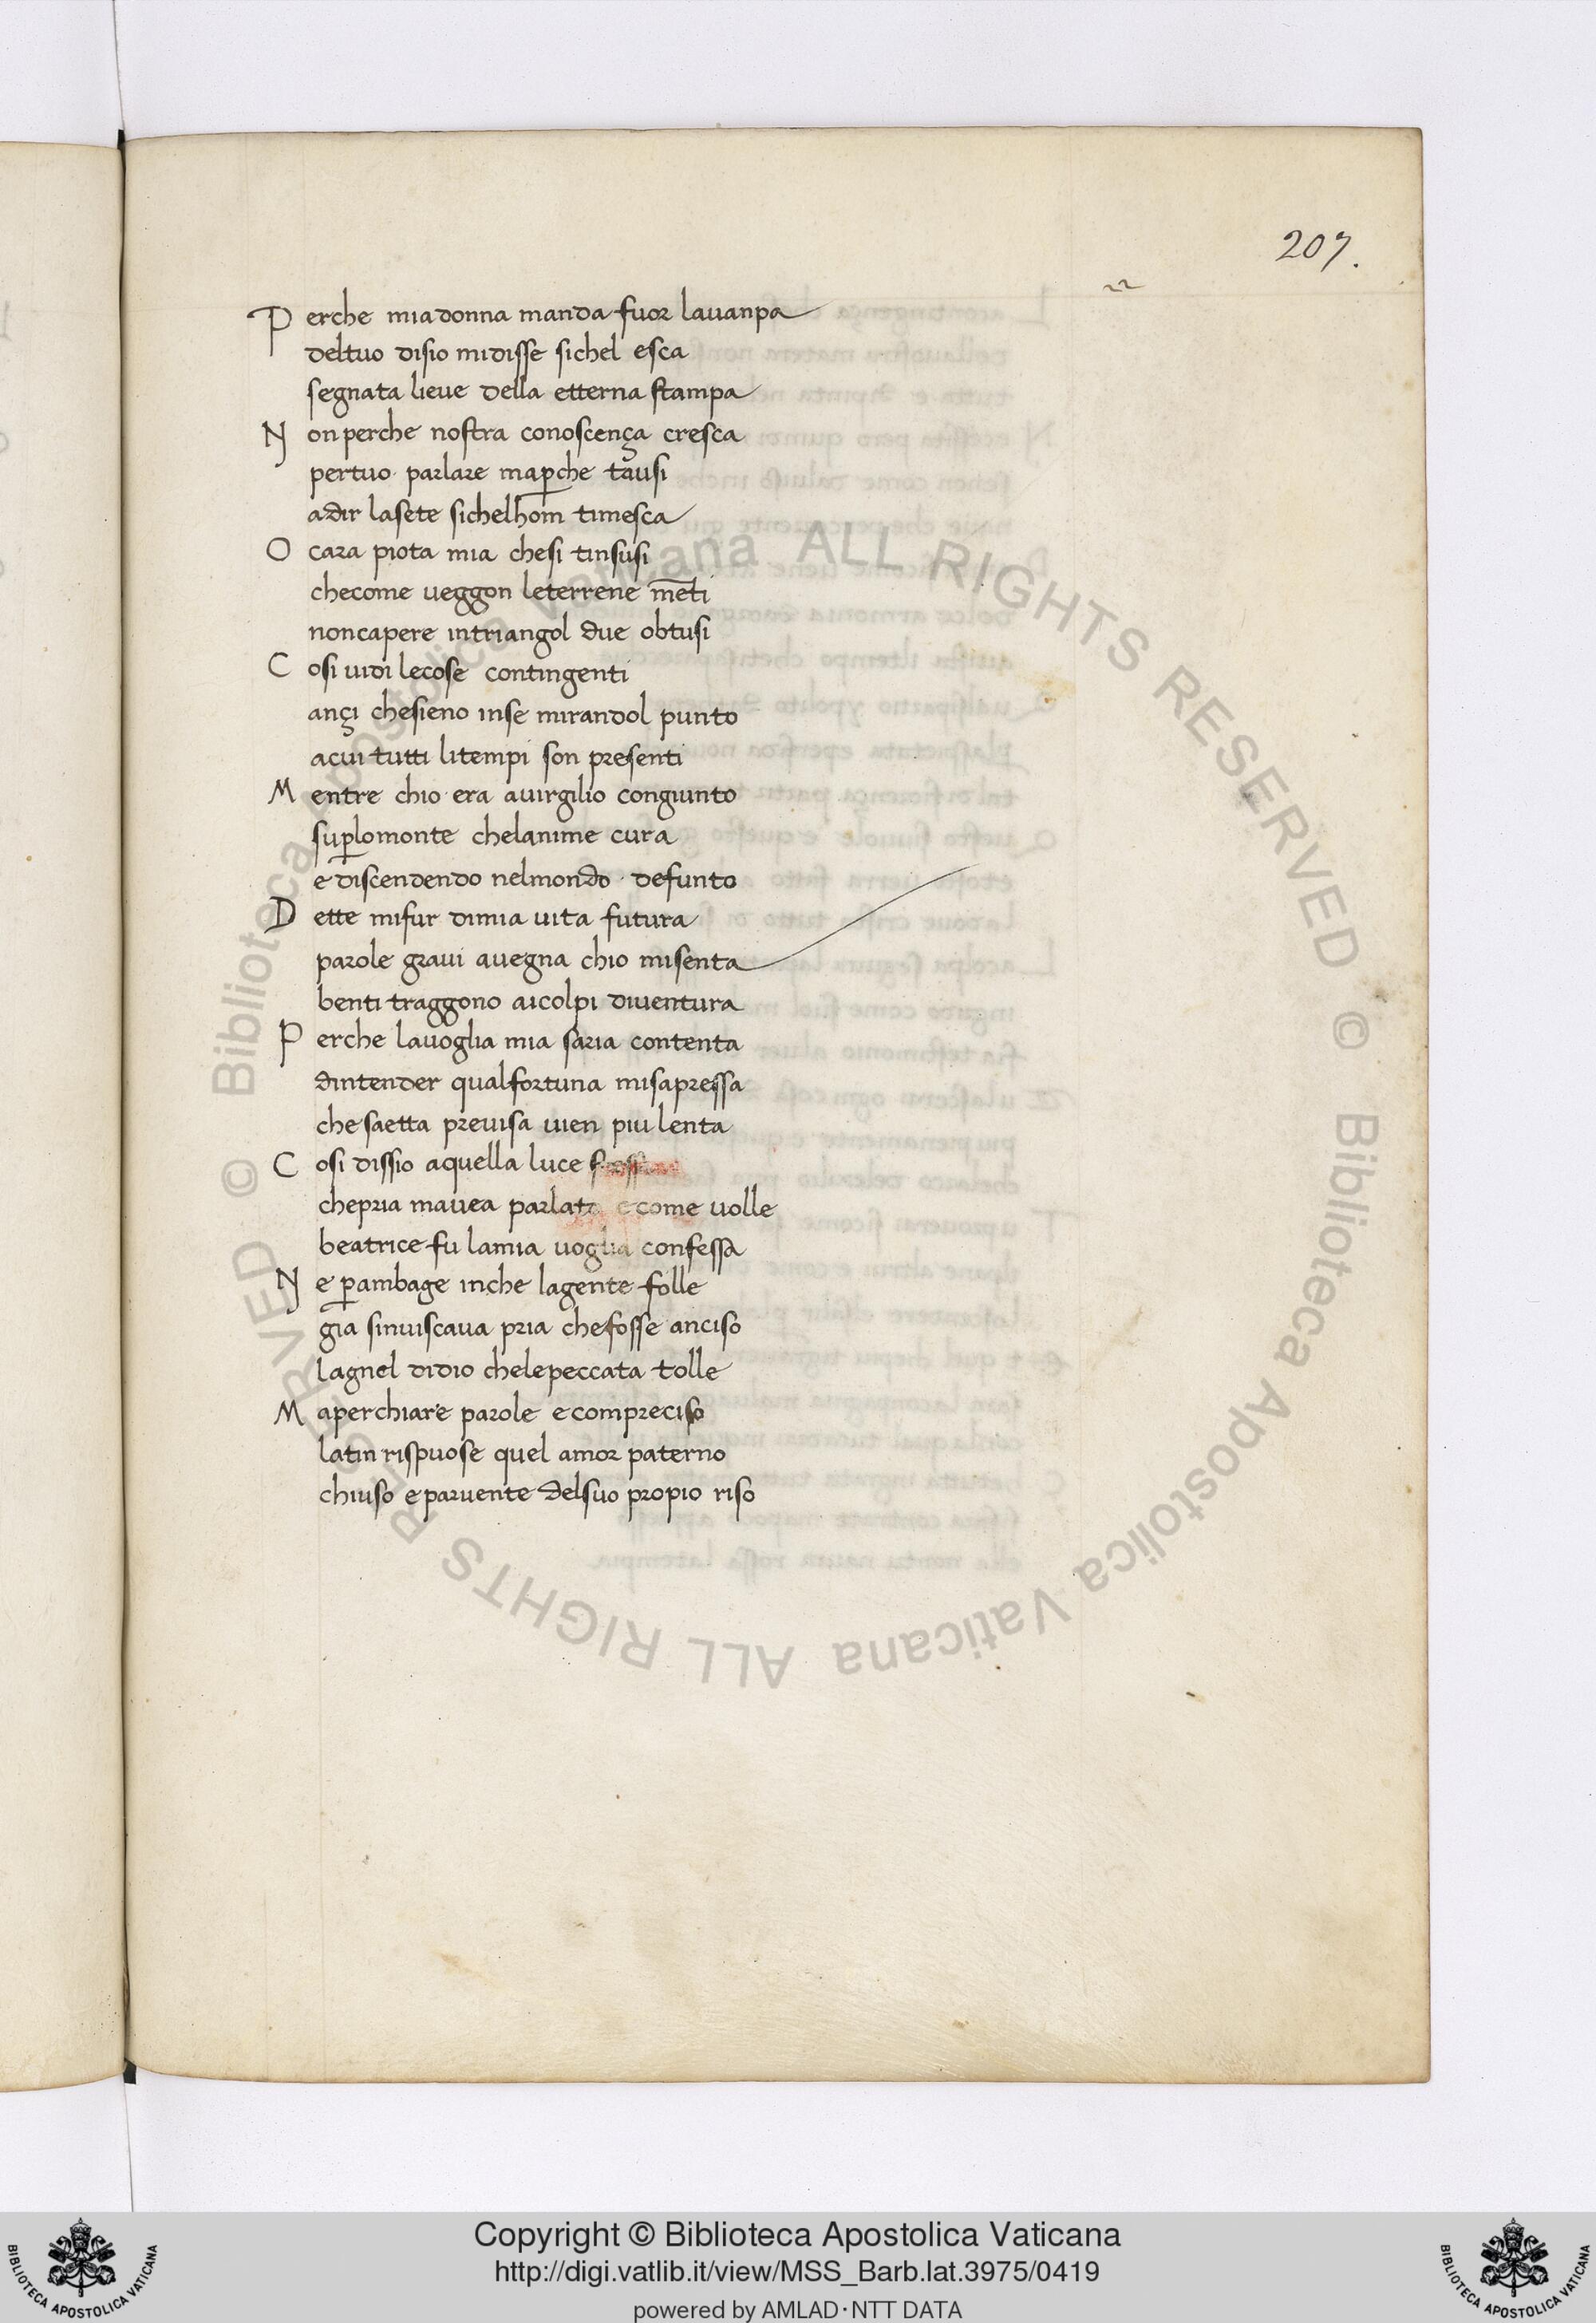 207.
Perche mia donna manda fuor lauanpa
deltuo disio midisse sichel esca
segnata lieue della etterna stampa
Non perche nostra conoscença cresca
pertuo parlare map̲che tausi
adir lasete sichelhom̅ timesca
O cara piota mia chesi tinsusi
checome ueggon leterrene me̅ti
noncapere intriangol due obtusi
Cosi uidi lecose contingenti
ançi chesieno inse mirandol punto
acui tutti litempi son presenti
Mentre chio era auirgilio congiunto
sup̲lomonte chelanime cura
e discendendo nelmondo defunto
Dette mifur dimia uita futura
parole graui auegna chio misenta
benti traggono aicolpi diuentura
Perche lauoglia mia saria contenta
dintender qualfortuna misapressa
che saetta preuisa uien piu lenta
Cosi dissio aquella luce
chepria mauea parlato e come uolle
beatrice fu lamia uoglia confessa
Ne p̲ambage inche lagente folle
gia sinuiscaua pria chefosse anciso
lagnel didio chelepeccata tolle
Maperchiare parole ecompreciso
latin rispuose quel amor paterno
chiuso eparuente delsuo propio riso
© Biblioteca Apostolica Vaticana ALL RIGHTS RESERVED
© Biblioteca Apostolica Vaticana ALL RIGHTS RESERVED
Copyright © Biblioteca Apostolica Vaticana
http://digi.vatlib.it/view/MSS_Barb.lat.3975/0419
powered by AMLAD·NTT DATA
BIBLIOTECA APOSTOLICA VATICANA
BIBLIOTECA APOSTOLICA VATICANA